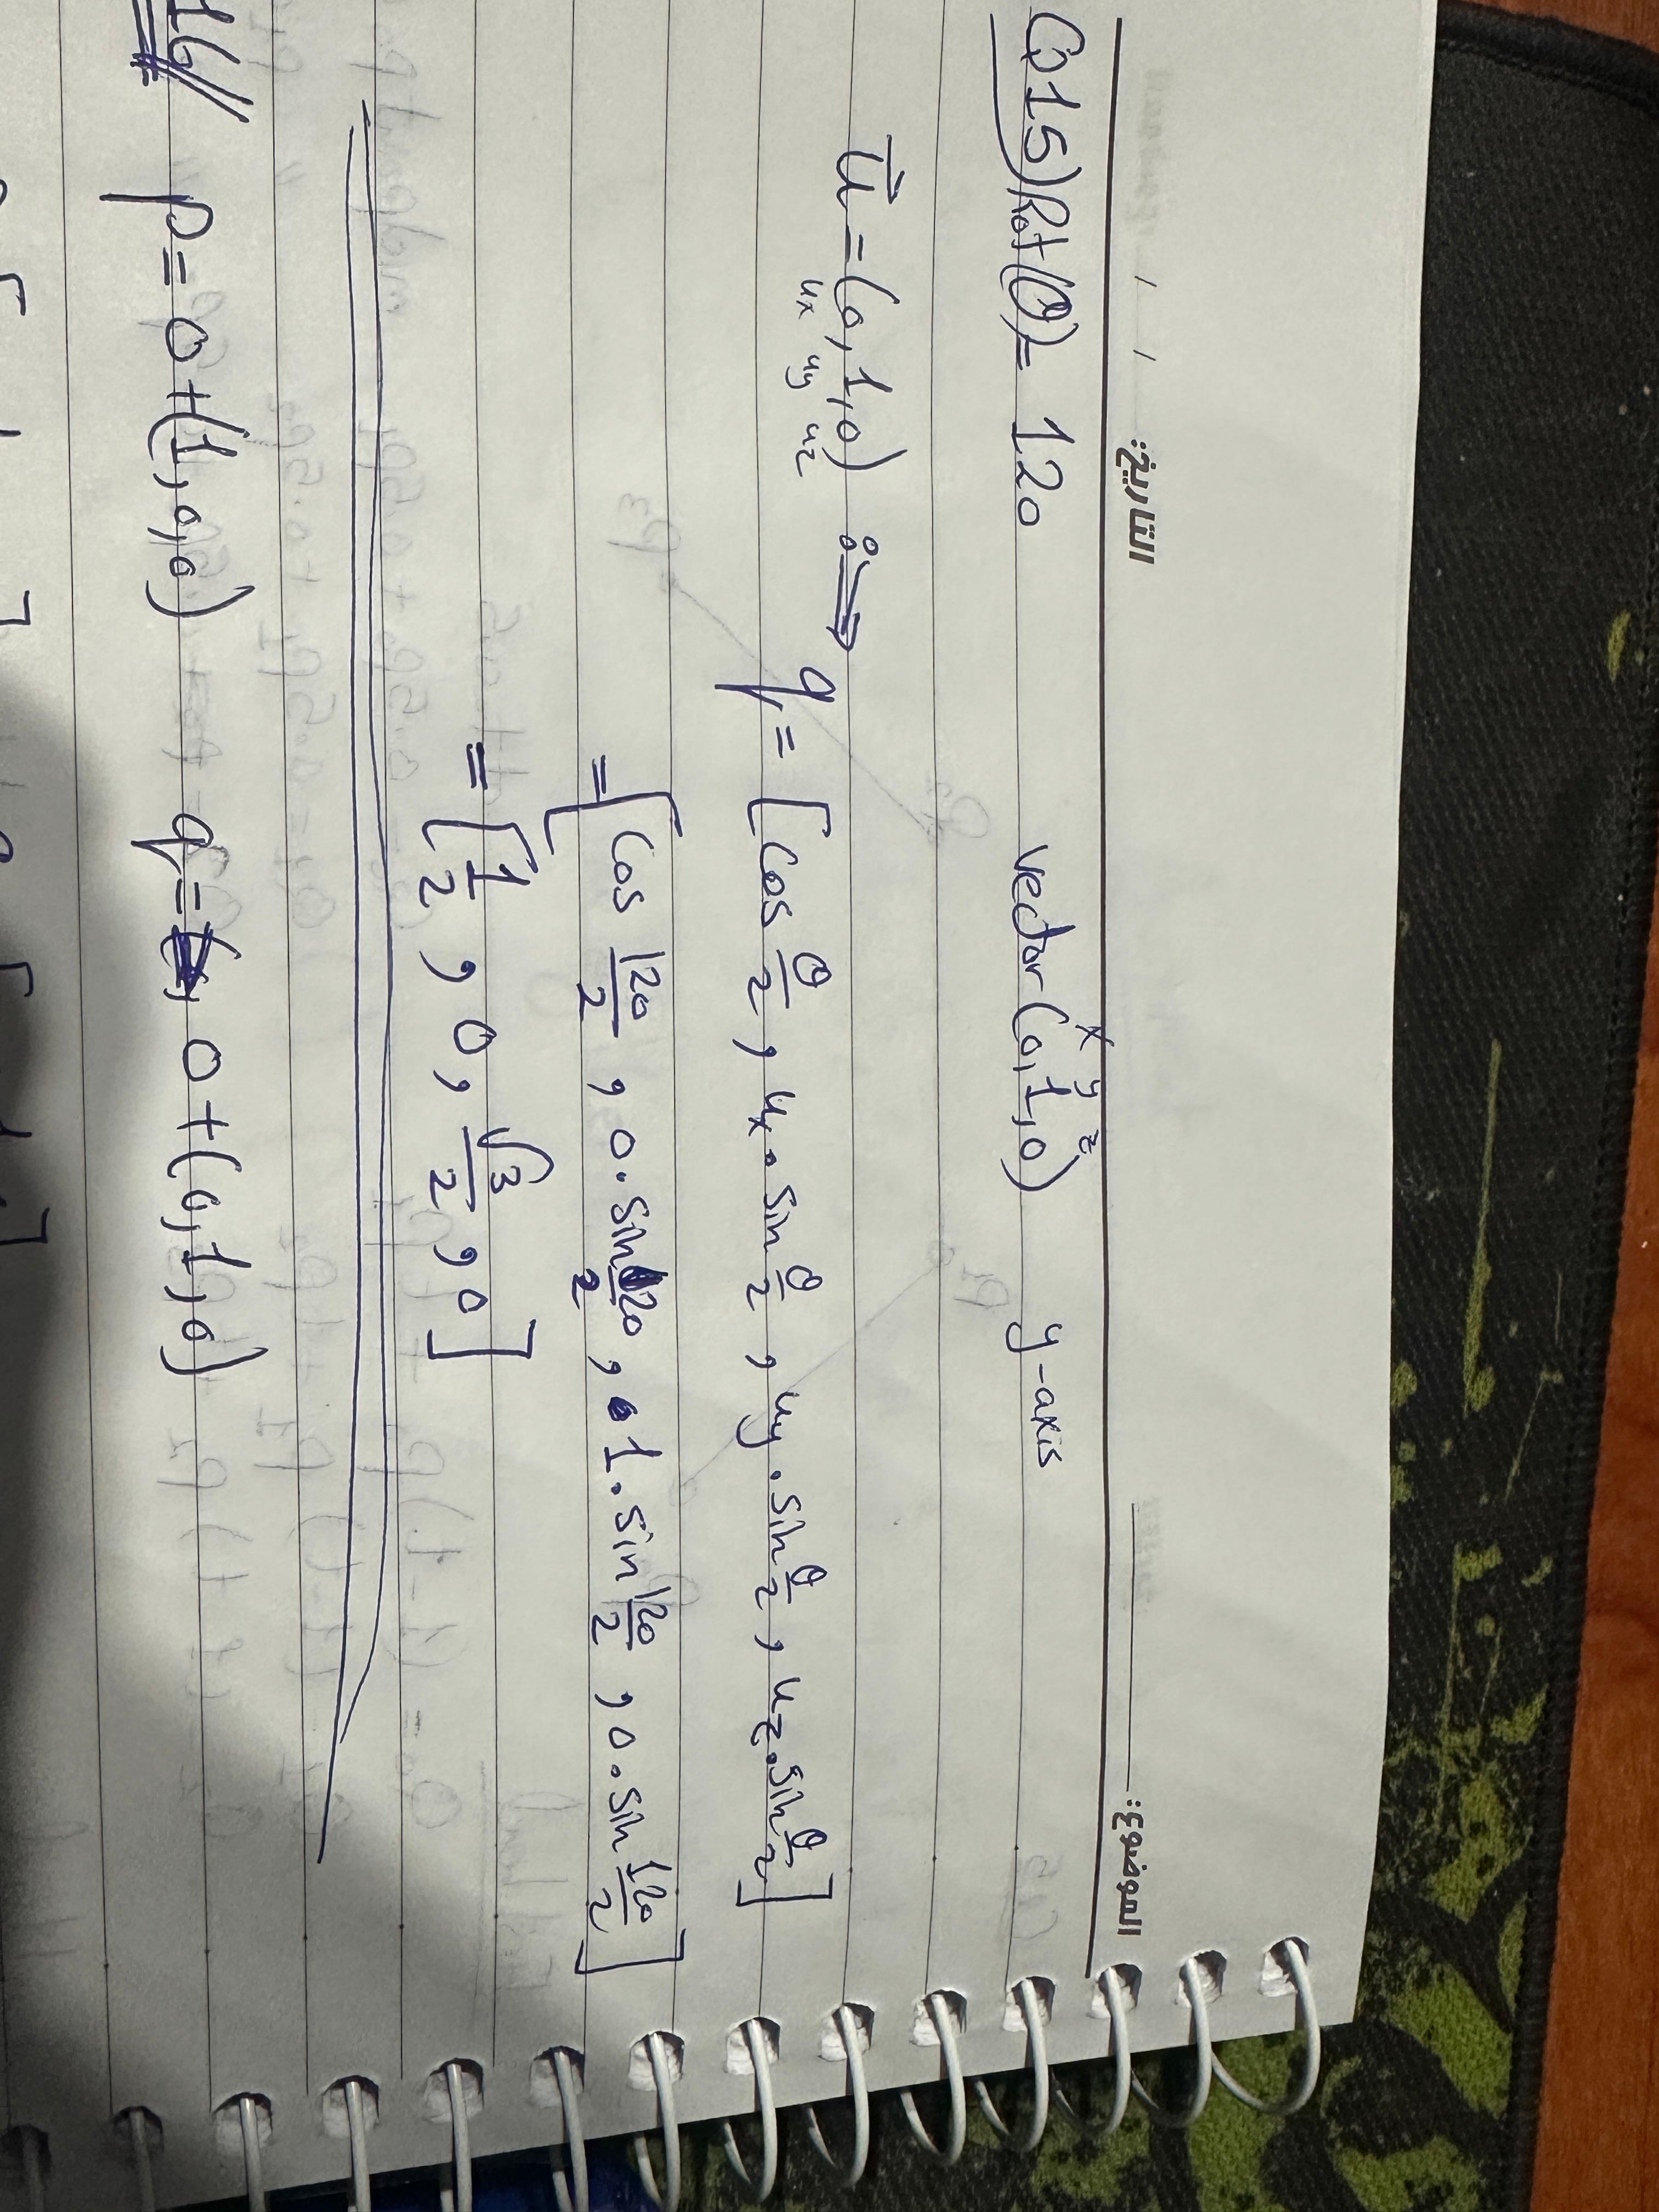 الموضوع: التاريخ: / /
x y z
Q15) Rot(θ)= 120 vector (0,1,0) y-axis
u⃗ = (0,1,0) :⟹
ux uy uz
q = [cos θ/2 , ux . sin θ/2 , uy . sin θ/2 , uz . sin θ/2]
= [cos 120/2 , 0 . sin 120/2 , 1 . sin 120/2 , 0 . sin 120/2]
= [1/2 , 0 , √3/2 , 0]
16// p = 0 + (1,0,0) q = 0 + (0,1,0)